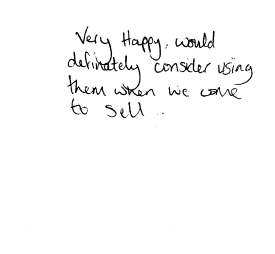 Very Happy, would
definately consider using
them when we come
to sell ..